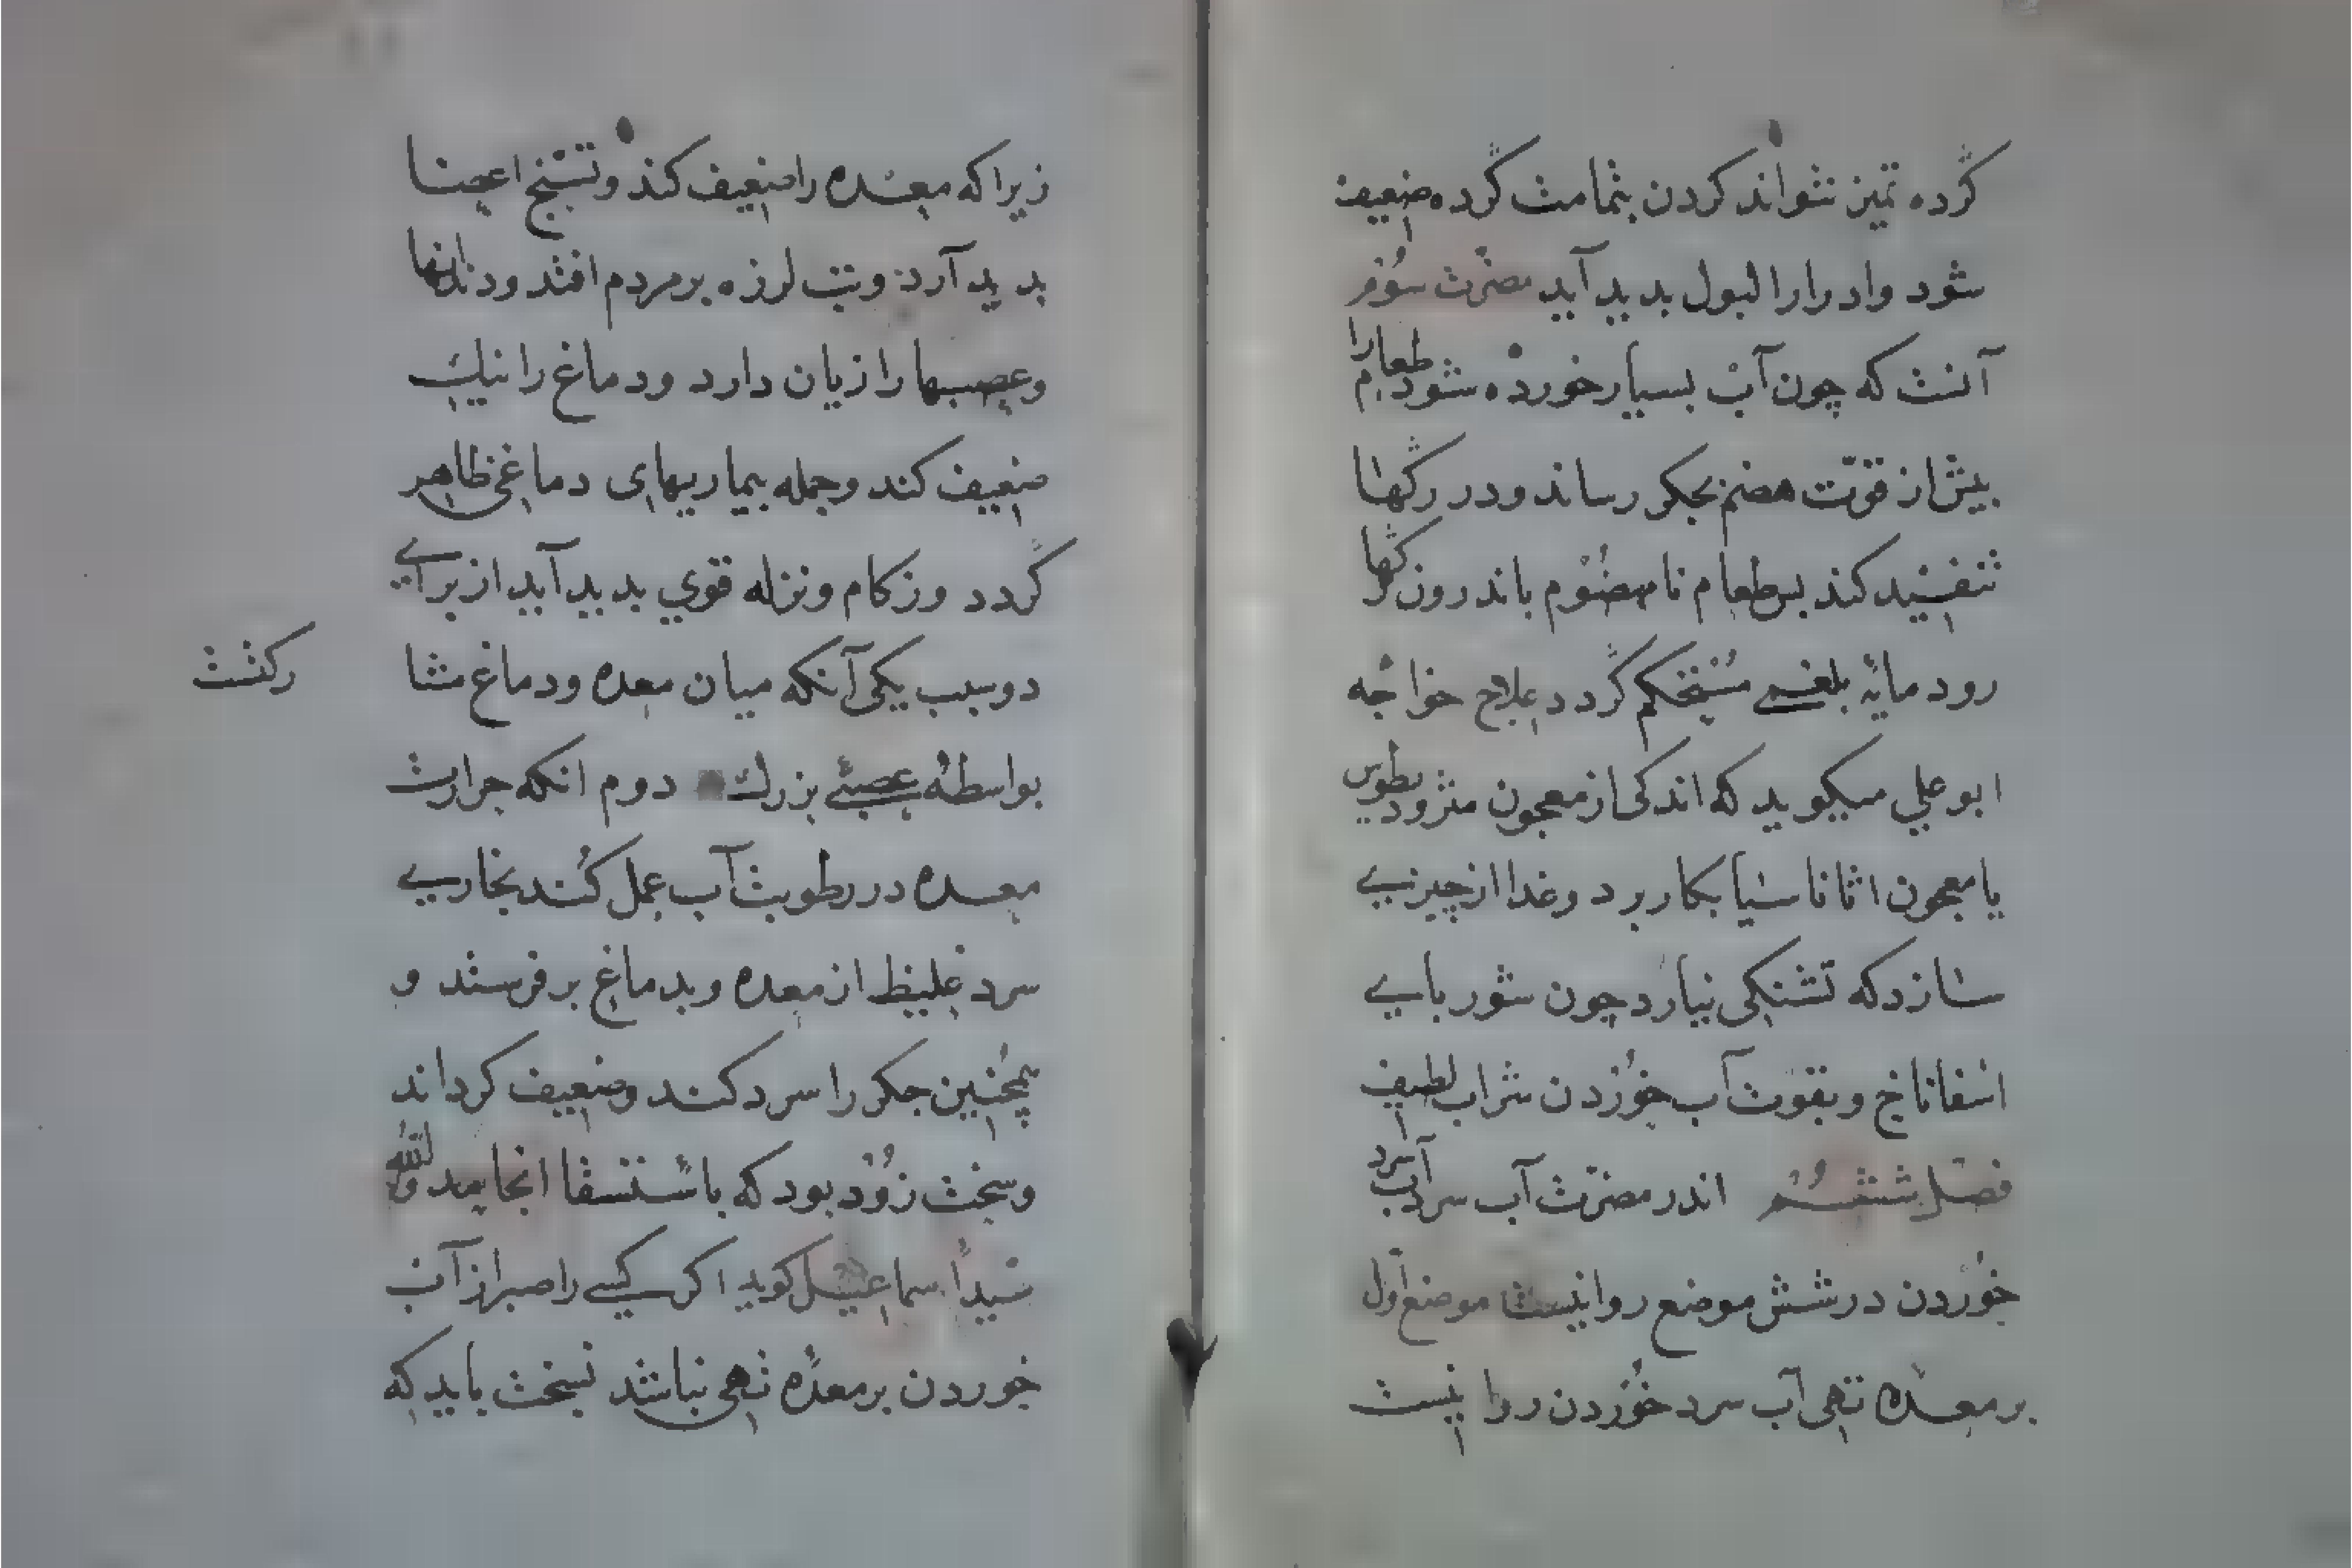 گرده تمیز نتواند کردن بتمامت گرده ضعیف
شود و ادرارا البول بدید آید مضرت سوم
آنست که چون آب بسیار خورده شود طعام را
بیش از قوت هضم بجکر رساند و در رگها
تنفیذ کند بس طعام نامهضوم باندرون رگها
رود مایه بلغمی مستحکم گردد علاج خواجه
ابوعلی میکوید که اندکی از معجون مثرودیطوس
یا معجون اثاناسیا بکار برد و غدا از چیزیی
سازد که تشنکی نیارد چون شوربایی
اسفاناخ و بقوت آب خوردن شراب لطیف
فصل ششم اندر مضرت آب سرد آب سرد
خوردن در شش موضع روا نیست موضع اول
بر معده تهی آب سرد خوردن روا نیست
زیرا که معده را ضعیف کند و تشنج اعضا
بدید آرد و تب لرزه بر مردم افتد و دندانها
و عصبها را زیان دارد و دماغ را نیک
ضعیف کند و جمله بیماریهای دماغی ظاهر
گردد و زکام و نزله قوی بدید آید از برایی
دو سبب یکی آنکه میان معده و دماغ مشا
رکتست
بواسطه عصبی بزرک دوم انکه حرارت
معده در رطوبت آب عمل کند بخاریی
سرد غلیظ از معده و بدماغ برفرستد و
همچنین جکر را سرد کند و ضعیف کرداند
و سخت زود بود که باستسقا انجامد والله
سید اسماعیل کوید اکر کسی را صبر از آب
خوردن بر معده تهی نباشد نسخت باید که